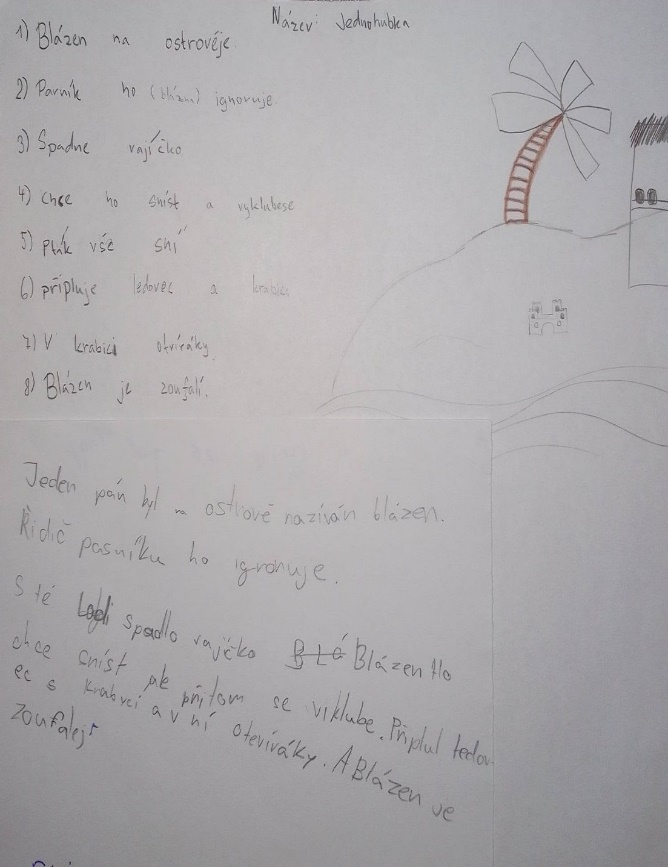 Název: Jednohubka
1) Blázen na ostrověje.
2) Parník ho (blázna) ignoruje.
3) Spadne vajíčko
4) Chce ho sníst a vyklubese
5) Pták vše sní
6) připluje ledovec a krabice
7) V krabici otviráky
8) Blázen je zoufalí.
Jeden pán byl na ostrově nazíván blázen.
Řidič pasníku ho igronuje.
S té lodi spadlo vajíčko BLÁ Blázen Ho
chce sníst ale přitom se viklube. Připlul ledov
ec s krabicí a v ní otevíráky. A Blázen ve
zoufalej